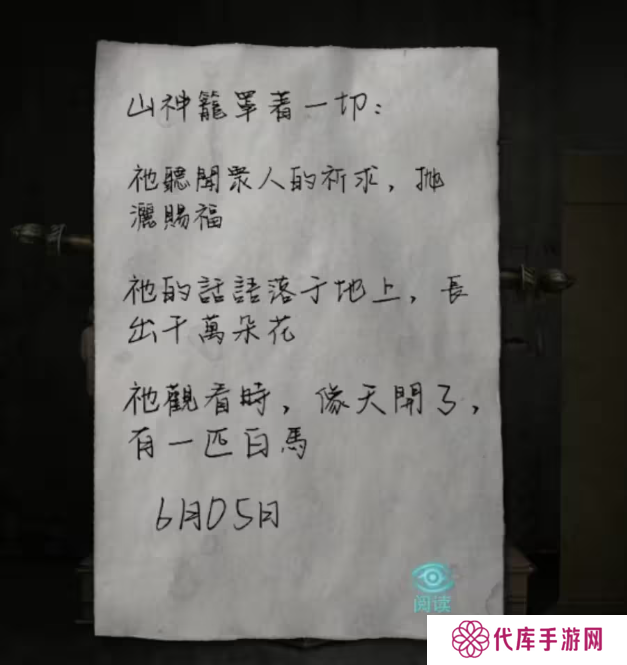 山神籠罩着一切:
祂聽聞眾人的祈求，拋
灑賜福
祂的話語落于地上，長
出千萬朵花
祂觀看時，像天開了，
有一匹白馬
6月05日
阅读
代库手游网